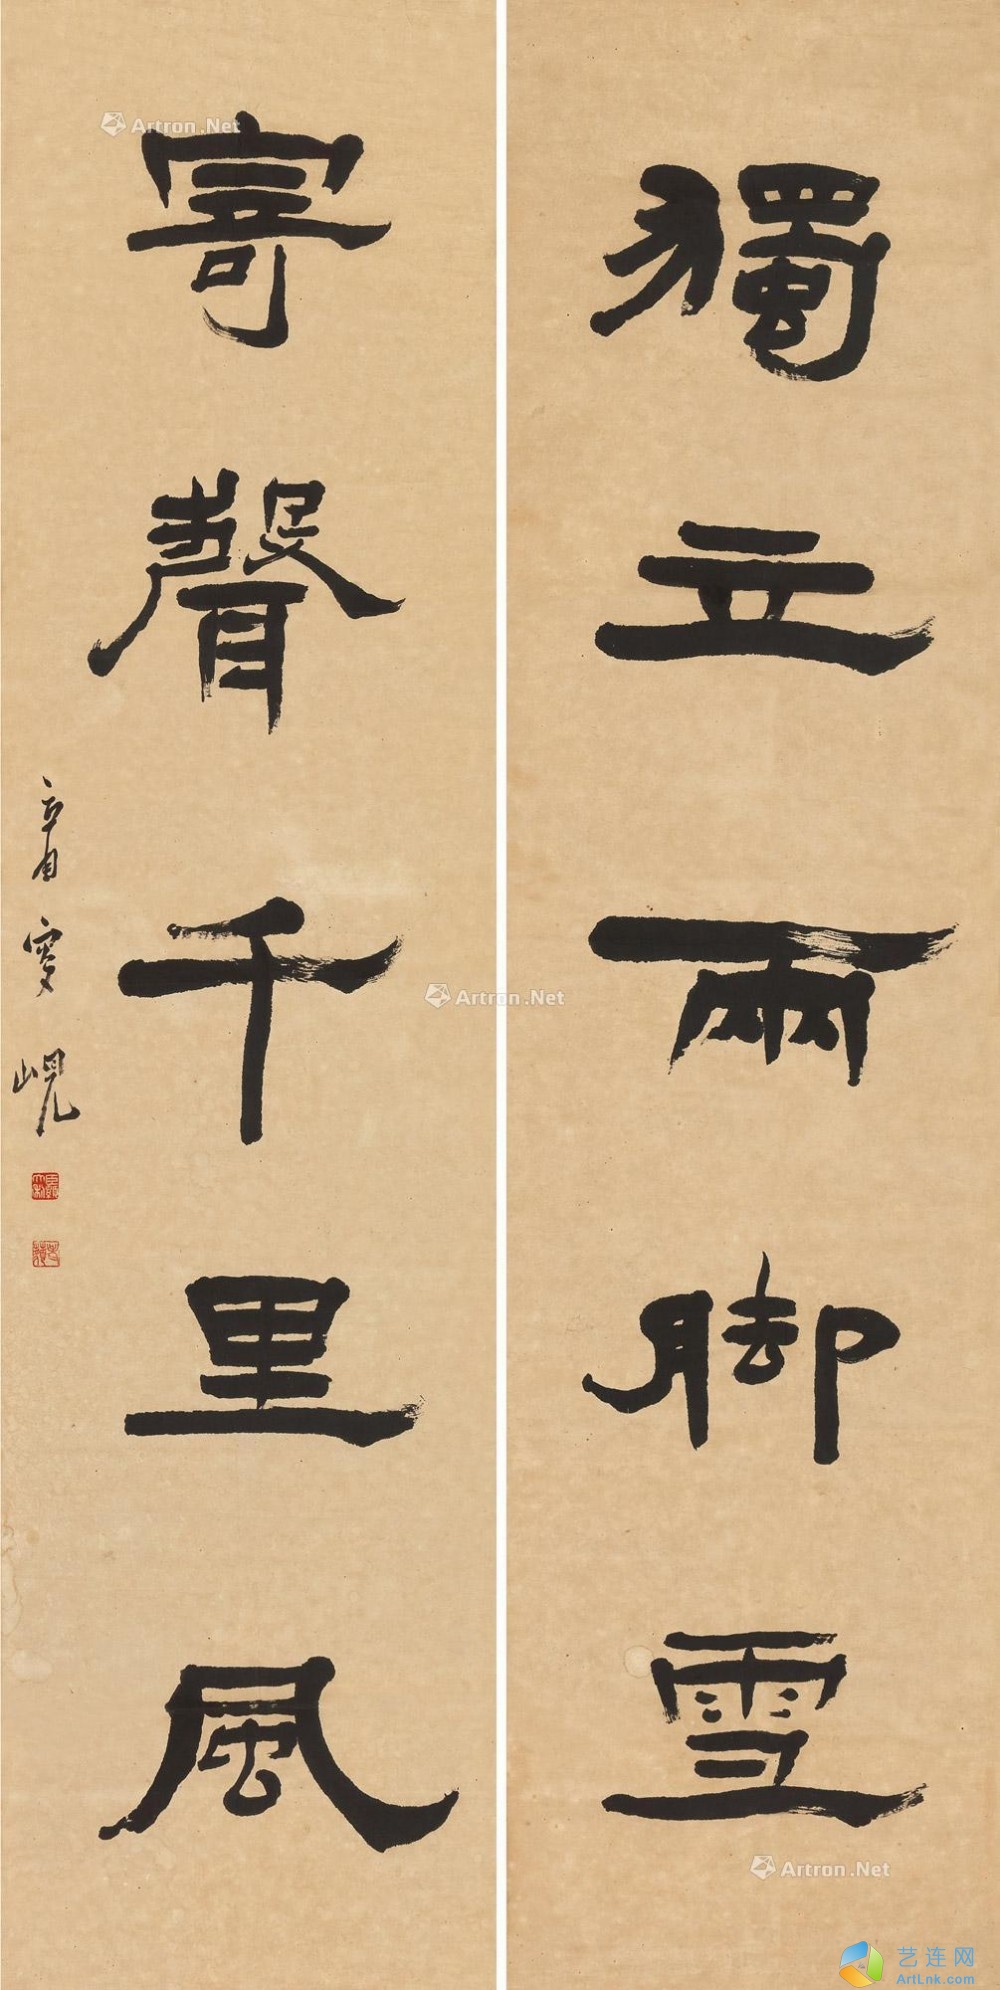 獨立兩脚雪
寄聲千里風
Artron.Net
Artron.Net
Artron.Net
艺连网
ArtLnk.com